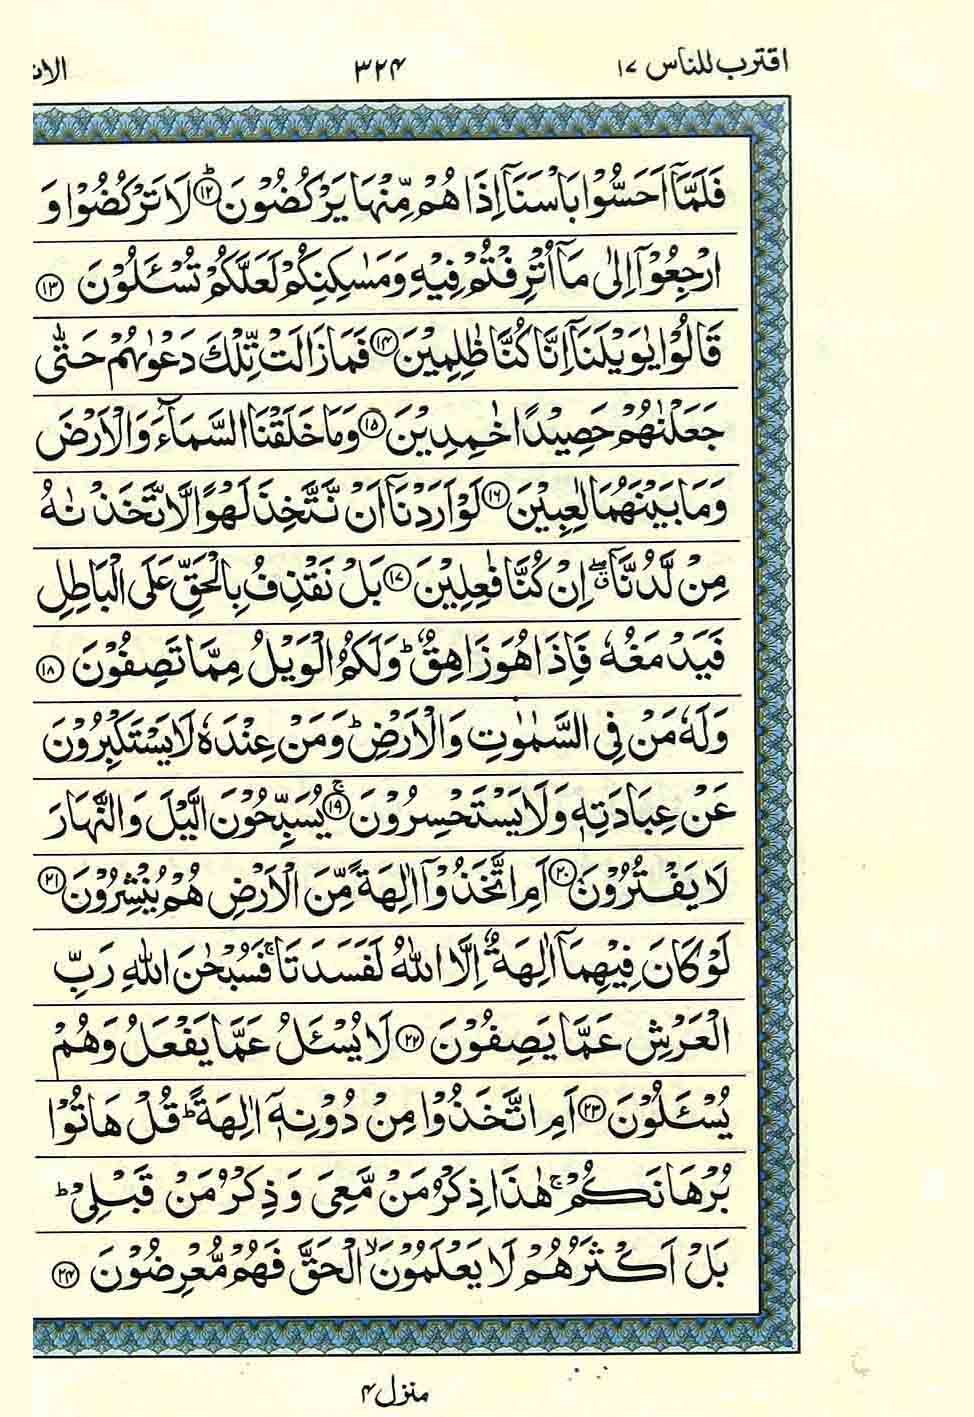 اقترب للناس ١٧
٣٢٤
الان
فَلَمَّاۤ اَحَسُّوْا بَاْسَنَاۤ اِذَا هُمْ مِّنْهَا يَرْكُضُوْنَ ؕ﴿۱۲﴾ لَا تَرْكُضُوْا وَ
ارْجِعُوْۤا اِلٰى مَاۤ اُتْرِفْتُمْ فِيْهِ وَمَسٰكِنِكُمْ لَعَلَّكُمْ تُسْـَٔلُوْنَ ﴿۱۳﴾
قَالُوْا يٰوَيْلَنَاۤ اِنَّا كُنَّا ظٰلِمِيْنَ ﴿۱۴﴾ فَمَا زَالَتْ تِّلْكَ دَعْوٰىهُمْ حَتّٰى
جَعَلْنٰهُمْ حَصِيْدًا خٰمِدِيْنَ ﴿۱۵﴾ وَمَا خَلَقْنَا السَّمَآءَ وَالْاَرْضَ
وَمَا بَيْنَهُمَا لٰعِبِيْنَ ﴿۱۶﴾ لَوْ اَرَدْنَاۤ اَنْ نَّتَّخِذَ لَهْوًا لَّاتَّخَذْنٰهُ
مِنْ لَّدُنَّاۤ ۖۗ اِنْ كُنَّا فٰعِلِيْنَ ﴿۱۷﴾ بَلْ نَقْذِفُ بِالْحَقِّ عَلَى الْبَاطِلِ
فَيَدْمَغُهٗ فَاِذَا هُوَ زَاهِقٌ ؕ وَلَكُمُ الْوَيْلُ مِمَّا تَصِفُوْنَ ﴿۱۸﴾
وَلَهٗ مَنْ فِى السَّمٰوٰتِ وَالْاَرْضِ ؕ وَمَنْ عِنْدَهٗ لَا يَسْتَكْبِرُوْنَ
عَنْ عِبَادَتِهٖ وَلَا يَسْتَحْسِرُوْنَ ۚ﴿۱۹﴾ يُسَبِّحُوْنَ الَّيْلَ وَالنَّهَارَ
لَا يَفْتُرُوْنَ ﴿۲۰﴾ اَمِ اتَّخَذُوْۤا اٰلِهَةً مِّنَ الْاَرْضِ هُمْ يُنْشِرُوْنَ ﴿۲۱﴾
لَوْ كَانَ فِيْهِمَاۤ اٰلِهَةٌ اِلَّا اللّٰهُ لَفَسَدَتَا ۚ فَسُبْحٰنَ اللّٰهِ رَبِّ
الْعَرْشِ عَمَّا يَصِفُوْنَ ﴿۲۲﴾ لَا يُسْـَٔلُ عَمَّا يَفْعَلُ وَهُمْ
يُسْـَٔلُوْنَ ﴿۲۳﴾ اَمِ اتَّخَذُوْا مِنْ دُوْنِهٖۤ اٰلِهَةً ؕ قُلْ هَاتُوْا
بُرْهَانَكُمْ ۚ هٰذَا ذِكْرُ مَنْ مَّعِىَ وَذِكْرُ مَنْ قَبْلِىْ ؕ
بَلْ اَكْثَرُهُمْ لَا يَعْلَمُوْنَ ۙ الْحَقَّ فَهُمْ مُّعْرِضُوْنَ ﴿۲۴﴾
منزل ۴